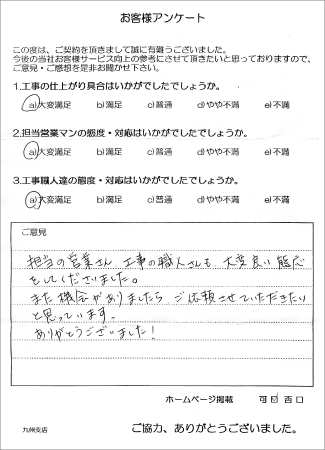 お客様アンケート
この度は、ご契約を頂きまして誠に有難うございました。
今後の当社お客様サービス向上の参考にさせて頂きたいと思っておりますので、
ご意見・ご感想を是非お聞かせ下さい。
1.工事の仕上がり具合はいかがでしたでしょうか。
a)大変満足 b)満足 c)普通 d)やや不満 e)不満
2.担当営業マンの態度・対応はいかがでしたでしょうか。
a)大変満足 b)満足 c)普通 d)やや不満 e)不満
3.工事職人達の態度・対応はいかがでしたでしょうか。
a)大変満足 b)満足 c)普通 d)やや不満 e)不満
ご意見
担当の営業さん、工事の職人さんも、大変良い態応
をしてくださいました。
また機会がありましたら、ご依頼させていただきたい
と思っています。
ありがとうございました!
ホームページ掲載 可 ☑ 否 口
九州支店
ご協力、ありがとうございました。